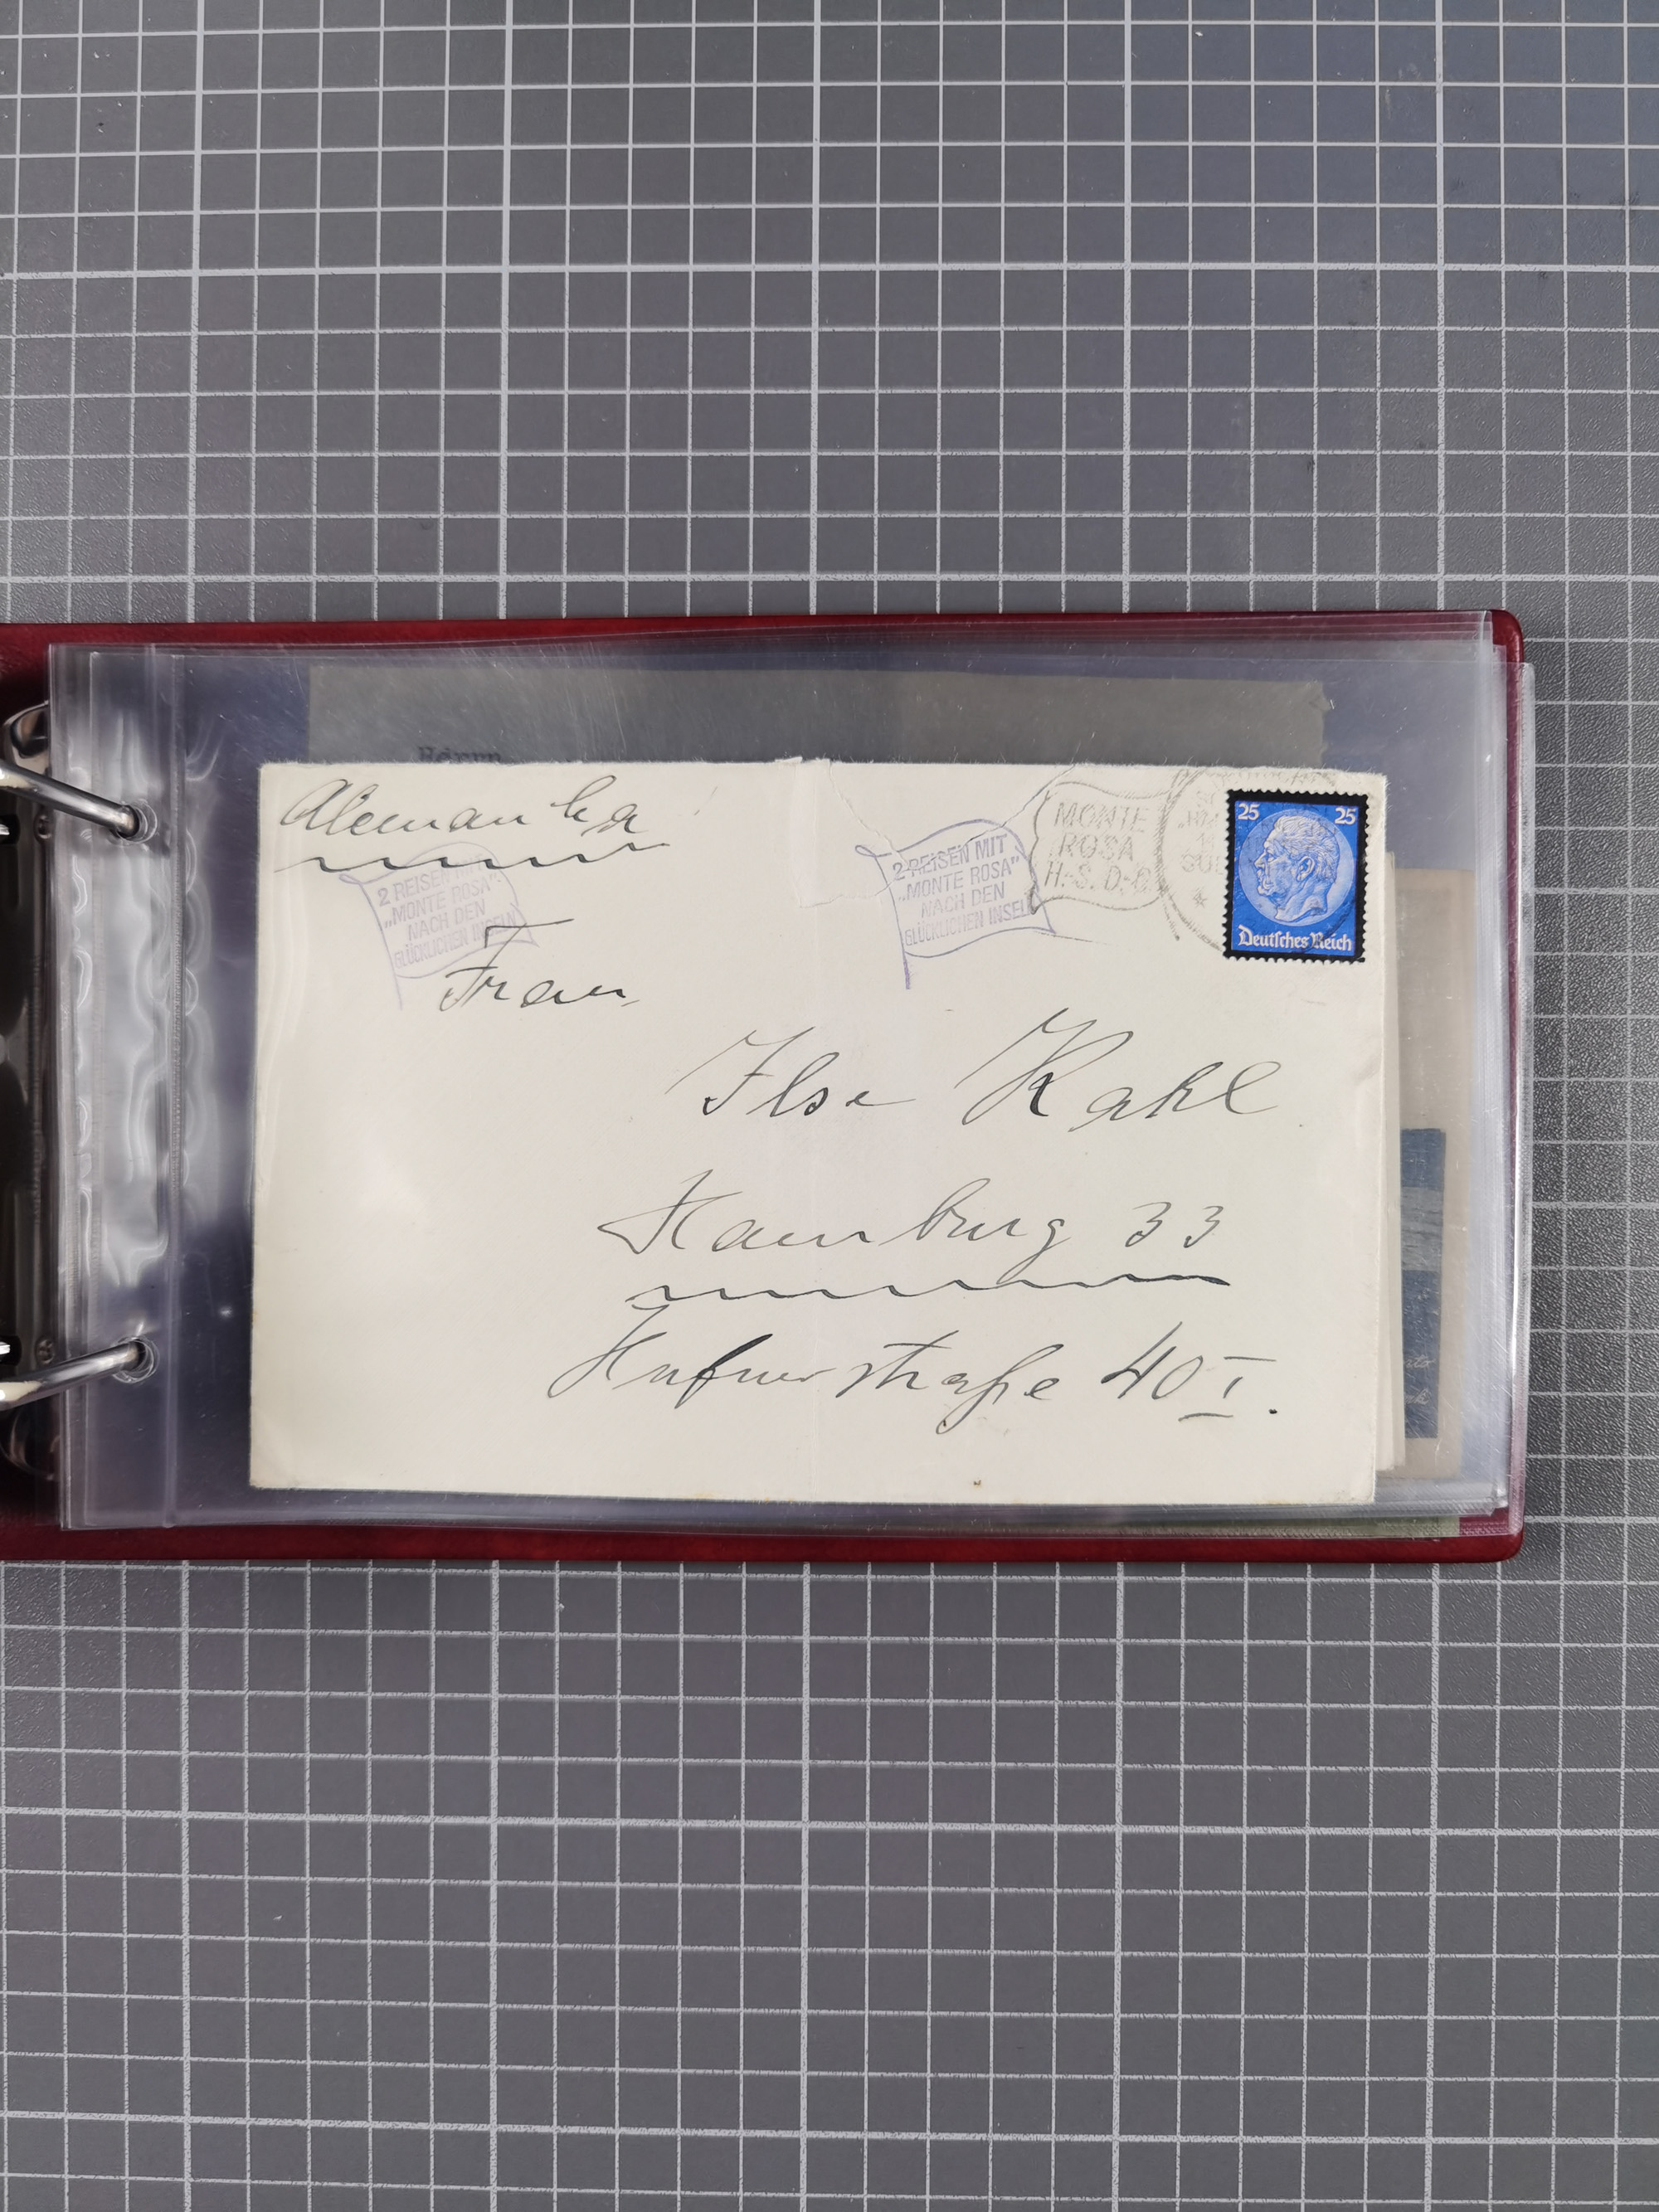 Alemanha
2 REISEN MIT
„MONTE ROSA“
NACH DEN
GLÜCKLICHEN INSELN
2 REISEN MIT
„MONTE ROSA“
NACH DEN
GLÜCKLICHEN INSELN
MONTE
ROSA
H.-S.D.-G.
25 25
Deutsches Reich
Frau
Ilse Kahl
Hamburg 33
Hufnerstraße 40 I.